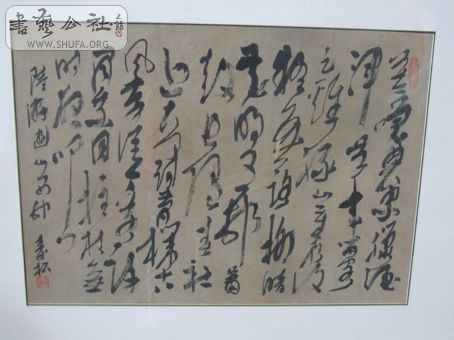 書藝公社
WWW.SHUFA.ORG
莫笑農家臘酒
渾豐年留客
足雞豚山重水復
疑無路柳暗
花明又一村簫
鼓追隨春社
近衣冠簡樸古
風存從今若許
閒乘月拄杖無
時夜叩門
陸游遊山西村